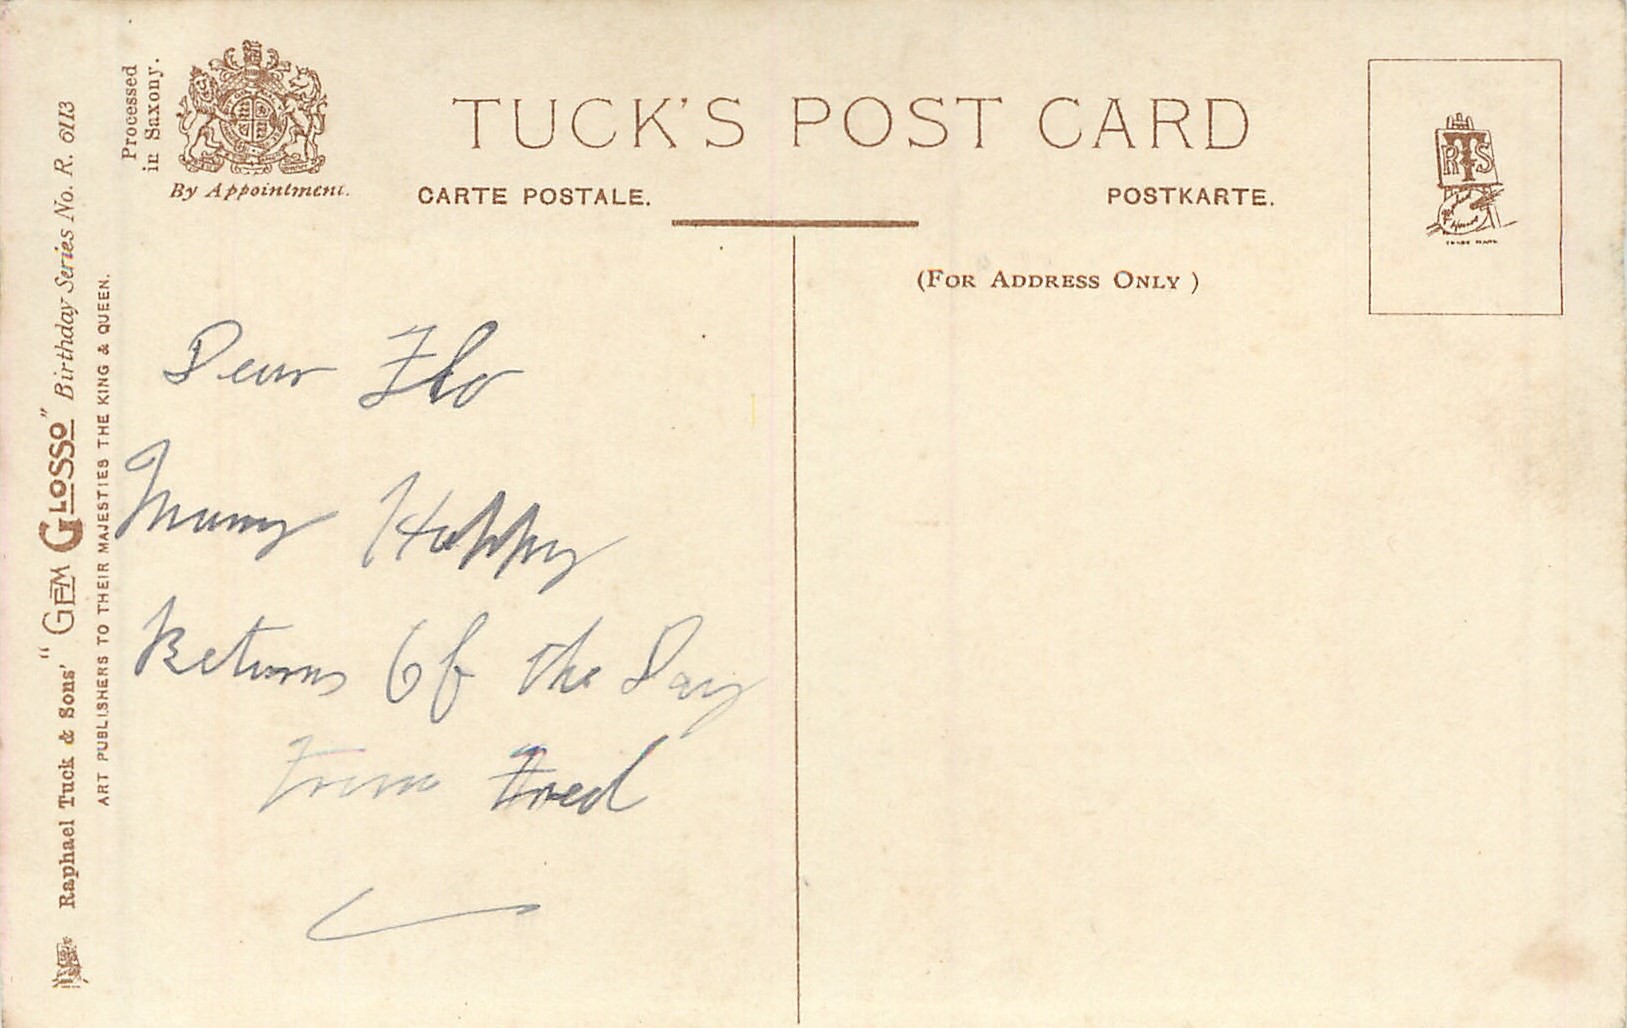 TUCK'S POST CARD
CARTE POSTALE.
POSTKARTE.
(FOR ADDRESS ONLY )
Processed
in Saxony.
By Appointment.
RTS
TRADE MARK
Raphael Tuck & Sons' "GEM GLOSSO" Birthday Series No. R. 0113
ART PUBLISHERS TO THEIR MAJESTIES THE KING & QUEEN.
Dear Flo
Many Happy
Returns Of the Day
From Fred